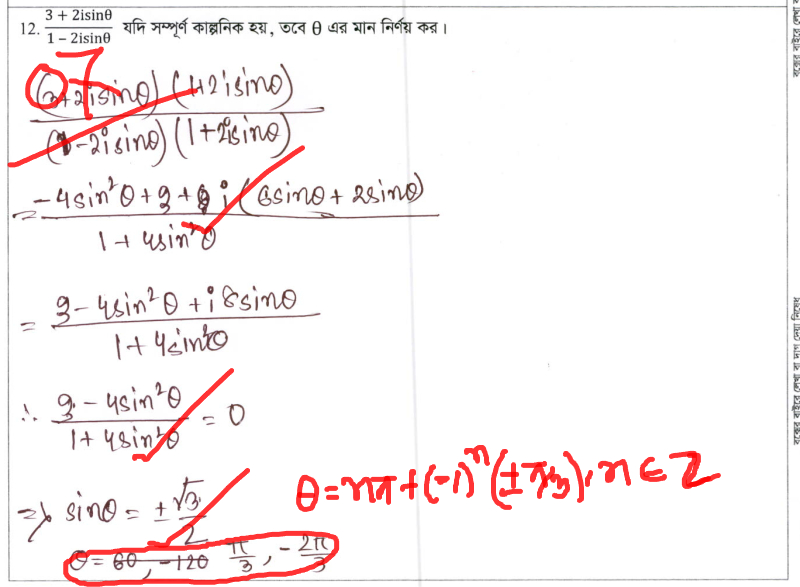 12. (3 + 2isinθ)/(1 − 2isinθ) যদি সম্পূর্ণ কাল্পনিক হয়, তবে θ এর মান নির্ণয় কর।
7
((3+2isinθ) (1+2isinθ))/((1-2isinθ) (1+2isinθ))
= (-4sin²θ + 3 + i (6sinθ + 2sinθ))/(1 + 4sin²θ)
= (3 - 4sin²θ + i 8sinθ)/(1 + 4sin²θ)
∴ (3 - 4sin²θ)/(1 + 4sin²θ) = 0
⇒ sinθ = ± √3/2
θ = nπ + (-1)ⁿ (± π/3), n ∈ Z
θ = 60, -120 π/3, - 2π/3